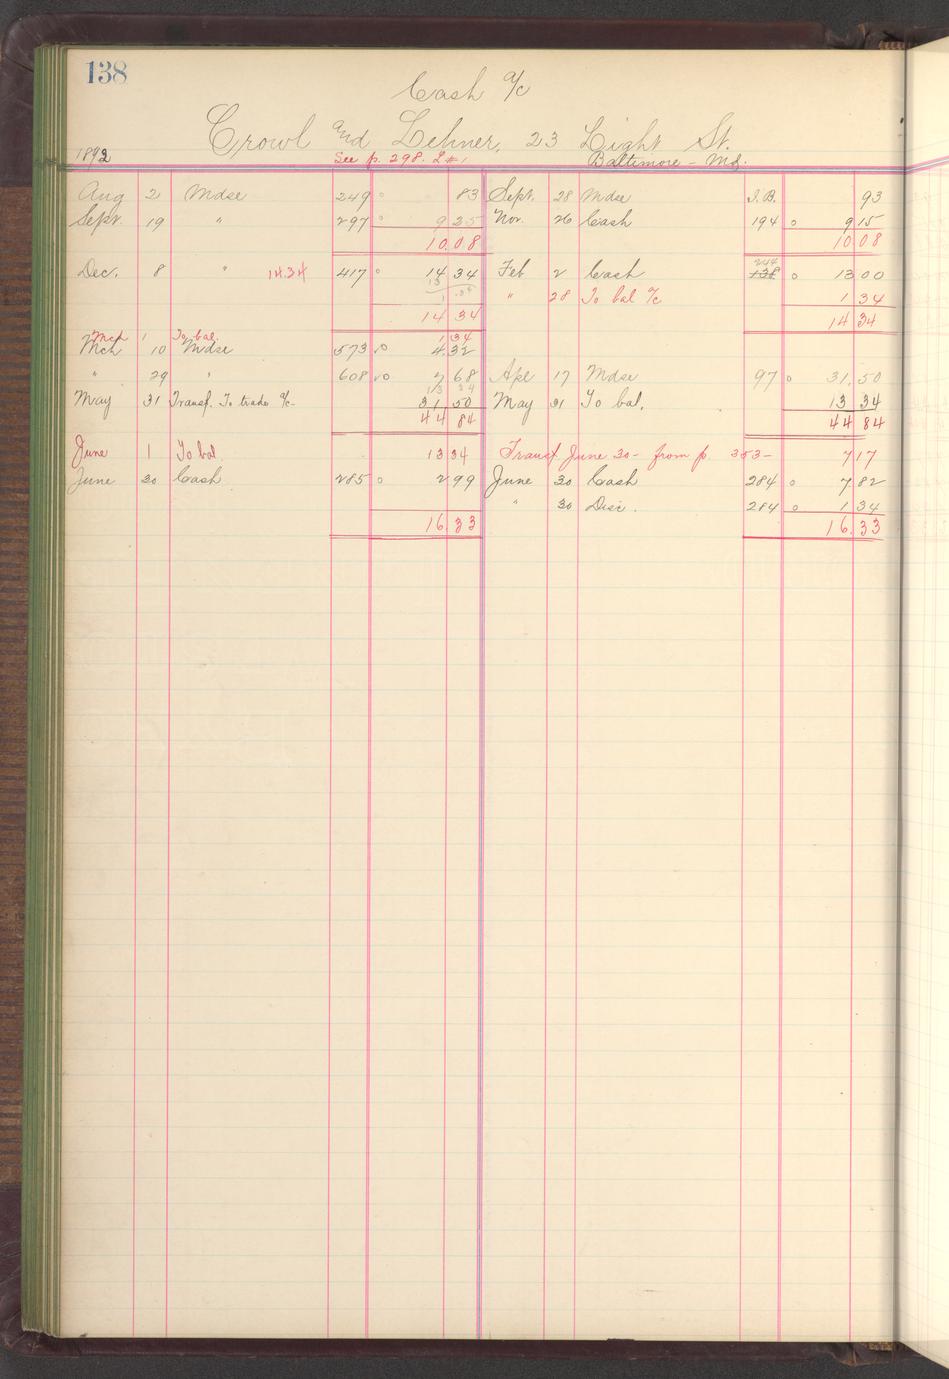 138
Cash a/c
Crowl and Lehner, 23 Light St.
1892 See p. 298. L#1 Baltimore - Md.
Aug 2 Mdse 249 o 83 Sept. 28 Mdse J.B. 93
Sept. 19 " 297 9 25 Nov. 26 Cash 194 o 9 15
10.08 10 08
Dec. 8 " 14.34 417 o 14 34 Feb 2 Cash 244 138 o 13 00
13
1.34 " 28 To bal a/c 1 34
14 34 14 34
Mch 1 To bal. 1 34
Mch 10 Mdse 573 o 4.32
" 29 " 608 o 7 68 Apl 17 Mdse 97 o 31.50
13 34
May 31 Transf. To trade a/c 31 50 May 31 To bal. 13 34
44 84 44 84
June 1 To bal. 13 34 Transf June 30 - from p. 353 - 7 17
June 30 Cash 285 o 2 99 June 30 Cash 284 o 7 82
" 30 Disc. 284 o 1 34
16 33 16.33